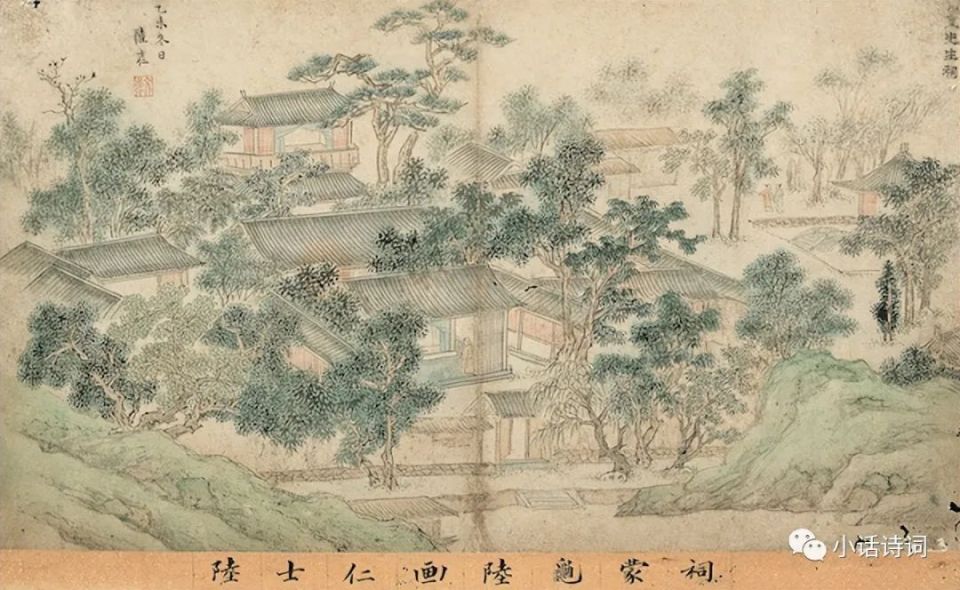 先生祠
乙未冬日
陸
陸士仁画陸龜蒙祠
小话诗词